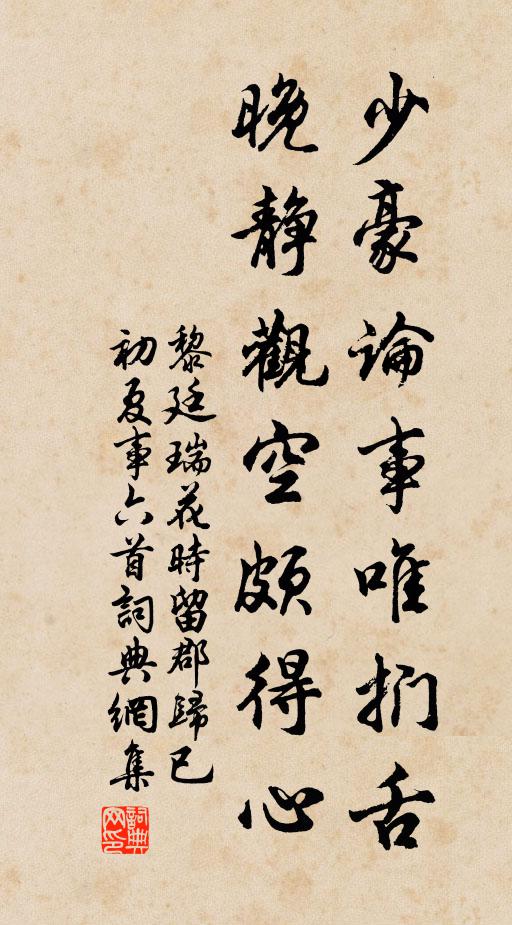 少豪論事唯捫舌
晚靜觀空頗得心
黎廷瑞花時留郡歸已
初夏事六首詞典網集
詞典網印